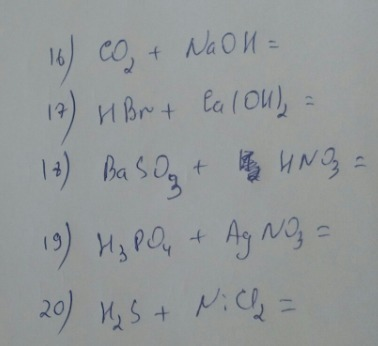 16) CO₂ + NaOH =
17) HBr + Ca(OH)₂ =
18) BaSO₃ + HNO₃ =
19) H₃PO₄ + AgNO₃ =
20) H₂S + NiCl₂ =